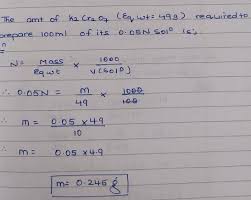 The amount of K2Cr2O7 (Eq. wt = 49g) required to
prepare 100ml of its 0.05N Solⁿ is;
N = Mass / Eq wt × 1000 / V(Solⁿ)
∴ 0.05N = m / 49 × 1000 / 100
∴ m = 0.05 × 4.9 / 10
∴ m = 0.05 × 4.9
m = 0.245 g